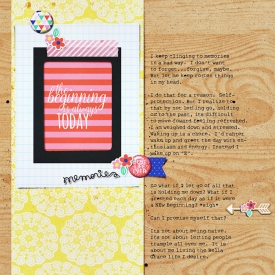 the
beginning
is always
TODAY
memories
I keep clinging to memories
in a bad way. I don't want
to forget...forgive, maybe.
But let me keep things
in my head.
I do that for a reason. Self-
protection. But I realize
that by not letting go, holding
on to the past, its difficult
to move forward feeling refreshed.
I am weighed down and stressed.
Waking up is a chore.
wake up and greet the day with en-
thusiasm and energy. Instead I
wake up on "E".
So what if I let go of all that
is holding me down? What if I
greeted each day as if it were
a NEW beginning? *sigh*
Can I promise myself that?
Its not about being naive.
Its not about letting people
trample all over me. It is
about me living the Bella
Grace life I desire.